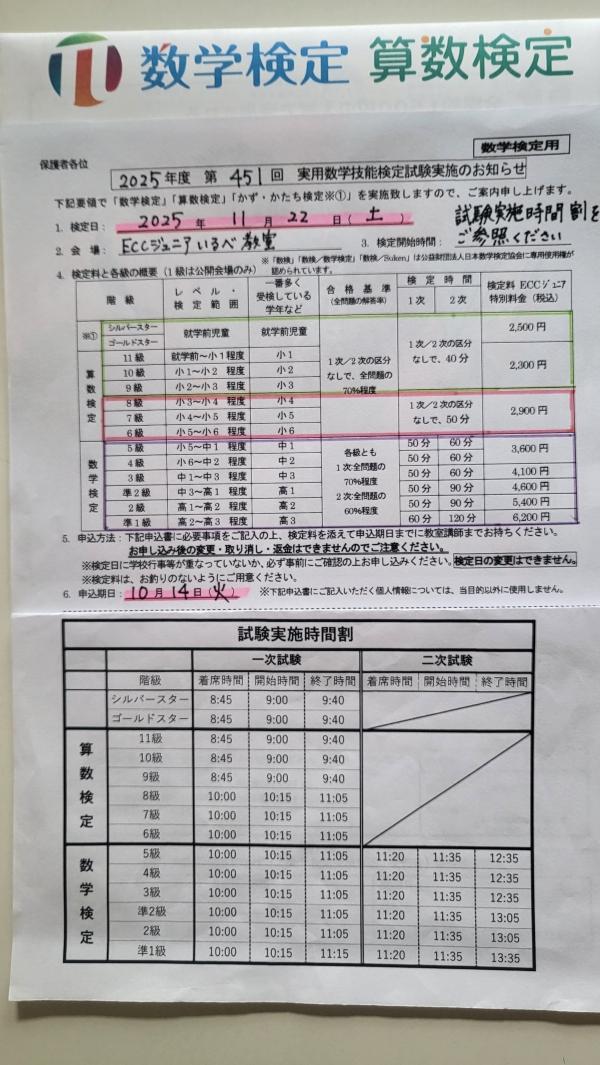 数学検定 算数検定
数学検定用
保護者各位
2025年度 第451回 実用数学技能検定試験実施のお知らせ
下記要領で「数学検定」「算数検定」「かず・かたち検定※①」を実施致しますので、ご案内申し上げます。
1. 検定日: 2025年 11月 22日(土)
試験実施時間割をご参照ください
2. 会 場: ECCジュニアいるべ教室 3. 検定開始時間:
※「数検」「数検/数学検定」「数検/Suken」は公益財団法人日本数学検定協会に専用使用権が認められています。
4. 検定料と各級の概要(1級は公開会場のみ)
階 級 レベル・検定範囲 一番多く受検している学年など 合格基準(全問題の解答率) 検定時間 1次 2次 検定料 ECCジュニア特別料金(税込)
※① シルバースター ゴールドスター 就学前児童 就学前児童 1次/2次の区分なしで、全問題の70%程度 1次/2次の区分なしで、40分 2,500円
算数検定
11級 就学前~小1程度 小1 2,300円
10級 小1~小2 程度 小2
9級 小2~小3 程度 小3
8級 小3~小4 程度 小4 1次/2次の区分なしで、50分 2,900円
7級 小4~小5 程度 小5
6級 小5~小6 程度 小6
数学検定
5級 小5~中1 程度 中1 各級とも1次全問題の70%程度2次全問題の60%程度 50分 60分 3,600円
4級 小6~中2 程度 中2 50分 60分
3級 中1~中3 程度 中3 50分 60分 4,100円
準2級 中3~高1 程度 高1 50分 90分 4,600円
2級 高1~高2 程度 高2 50分 90分 5,400円
準1級 高2~高3 程度 高3 60分 120分 6,200円
5. 申込方法:下記申込書に必要事項をご記入の上、検定料を添えて申込期日までに教室講師までお持ちください。
お申し込み後の変更・取り消し・返金はできませんのでご注意ください。
※検定日に学校行事等が重なっていないか、必ず事前にご確認の上お申し込みください。検定日の変更はできません。
※検定料は、お釣りのないようにご用意ください。
6. 申込期日: 10月14日(火) ※下記申込書にご記入いただく個人情報については、当目的以外に使用しません。
試験実施時間割
一次試験 二次試験
階級 着席時間 開始時間 終了時間 着席時間 開始時間 終了時間
シルバースター 8:45 9:00 9:40
ゴールドスター 8:45 9:00 9:40
算数検定
11級 8:45 9:00 9:40
10級 8:45 9:00 9:40
9級 8:45 9:00 9:40
8級 10:00 10:15 11:05
7級 10:00 10:15 11:05
6級 10:00 10:15 11:05
数学検定
5級 10:00 10:15 11:05 11:20 11:35 12:35
4級 10:00 10:15 11:05 11:20 11:35 12:35
3級 10:00 10:15 11:05 11:20 11:35 12:35
準2級 10:00 10:15 11:05 11:20 11:35 13:05
2級 10:00 10:15 11:05 11:20 11:35 13:05
準1級 10:00 10:15 11:15 11:20 11:35 13:35